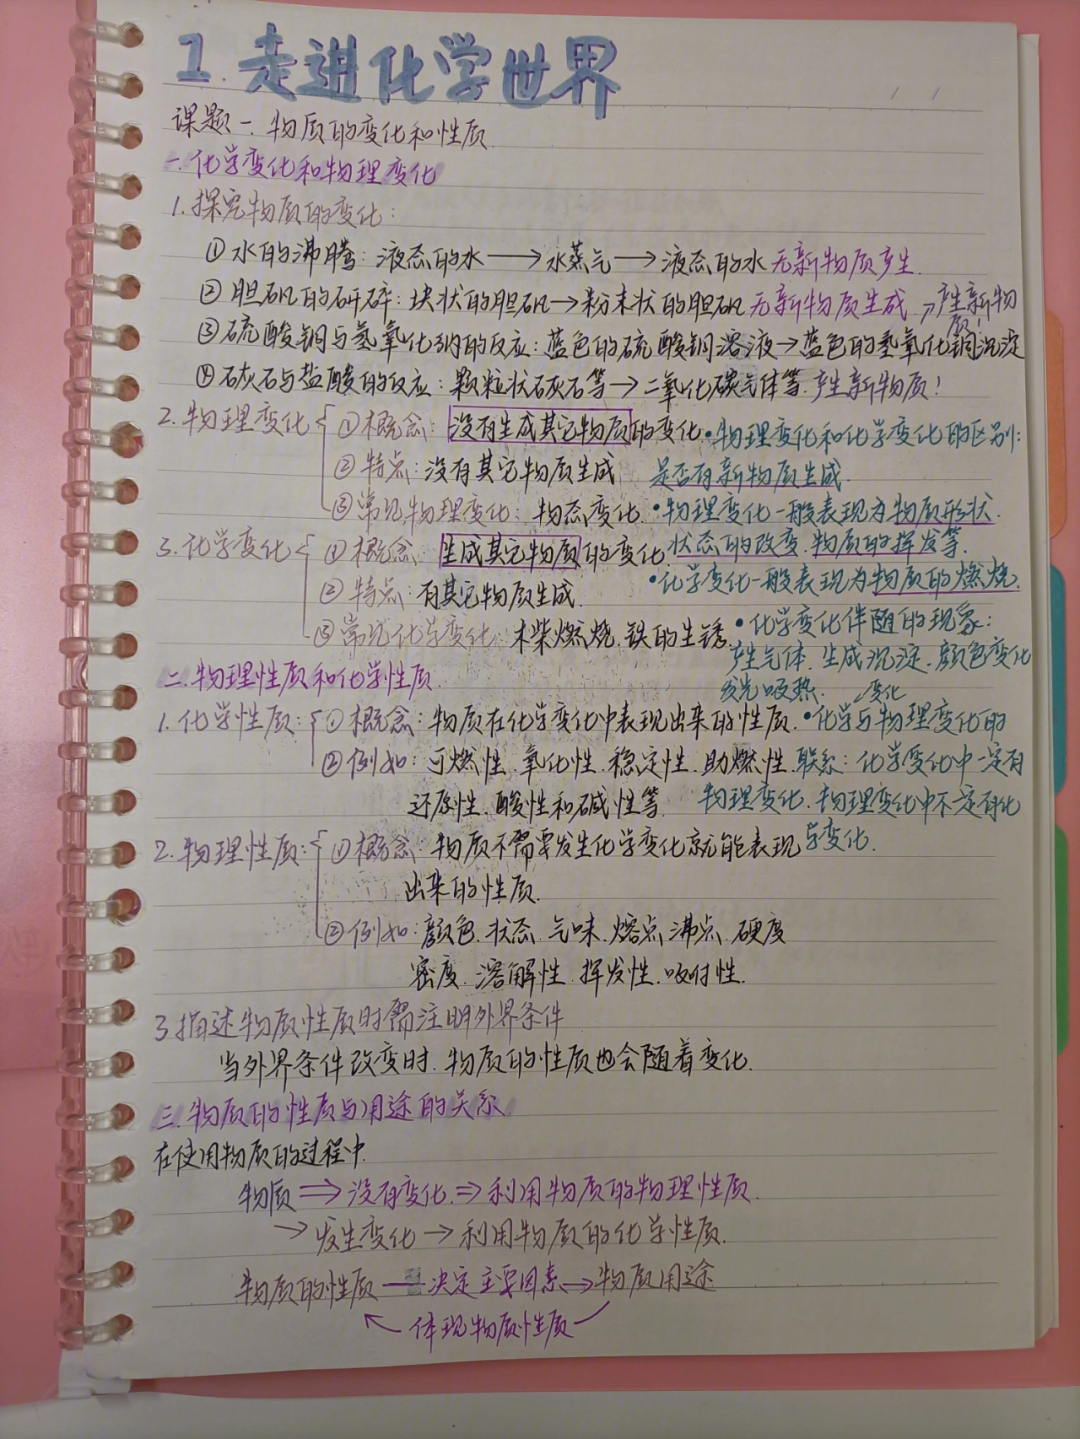 1.走进化学世界
课题一.物质的变化和性质
一.化学变化和物理变化
1.探究物质的变化:
①水的沸腾:液态的水→水蒸气→液态的水 无新物质产生.
②胆矾的研碎:块状的胆矾→粉末状的胆矾 无新物质生成 →产生新物质!
③硫酸铜与氢氧化钠的反应:蓝色的硫酸铜溶液→蓝色的氢氧化铜沉淀
④石灰石与盐酸的反应:颗粒状石灰石等→二氧化碳气体等.产生新物质!
2.物理变化 ①概念:没有生成其它物质的变化.
②特点:没有其它物质生成
③常见物理变化:物态变化.
•物理变化和化学变化的区别:
是否有新物质生成.
•物理变化一般表现为物质形状.
状态的改变.物质的挥发等.
3.化学变化 ①概念:生成其它物质的变化.
②特点:有其它物质生成.
③常见化学变化:木柴燃烧.铁的生锈.
•化学变化一般表现为物质的燃烧.
•化学变化伴随的现象:
产生气体.生成沉淀.颜色变化
发光吸热. 变化
二.物理性质和化学性质.
1.化学性质: ①概念:物质在化学变化中表现出来的性质.
②例如:可燃性.氧化性.稳定性.助燃性.
还原性.酸性和碱性等.
•化学与物理变化的
联系:化学变化中一定有
物理变化.物理变化中不一定有化
学变化.
2.物理性质: ①概念:物质不需要发生化学变化就能表现
出来的性质.
②例如:颜色.状态.气味.熔点.沸点.硬度
密度.溶解性.挥发性.吸附性.
3.描述物质性质时需注明外界条件
当外界条件改变时.物质的性质也会随着变化.
三.物质的性质与用途的关系
在使用物质的过程中.
物质⇒没有变化.⇒利用物质的物理性质.
→发生变化→利用物质的化学性质.
物质的性质—决定主要因素→物质用途
←体现物质性质—